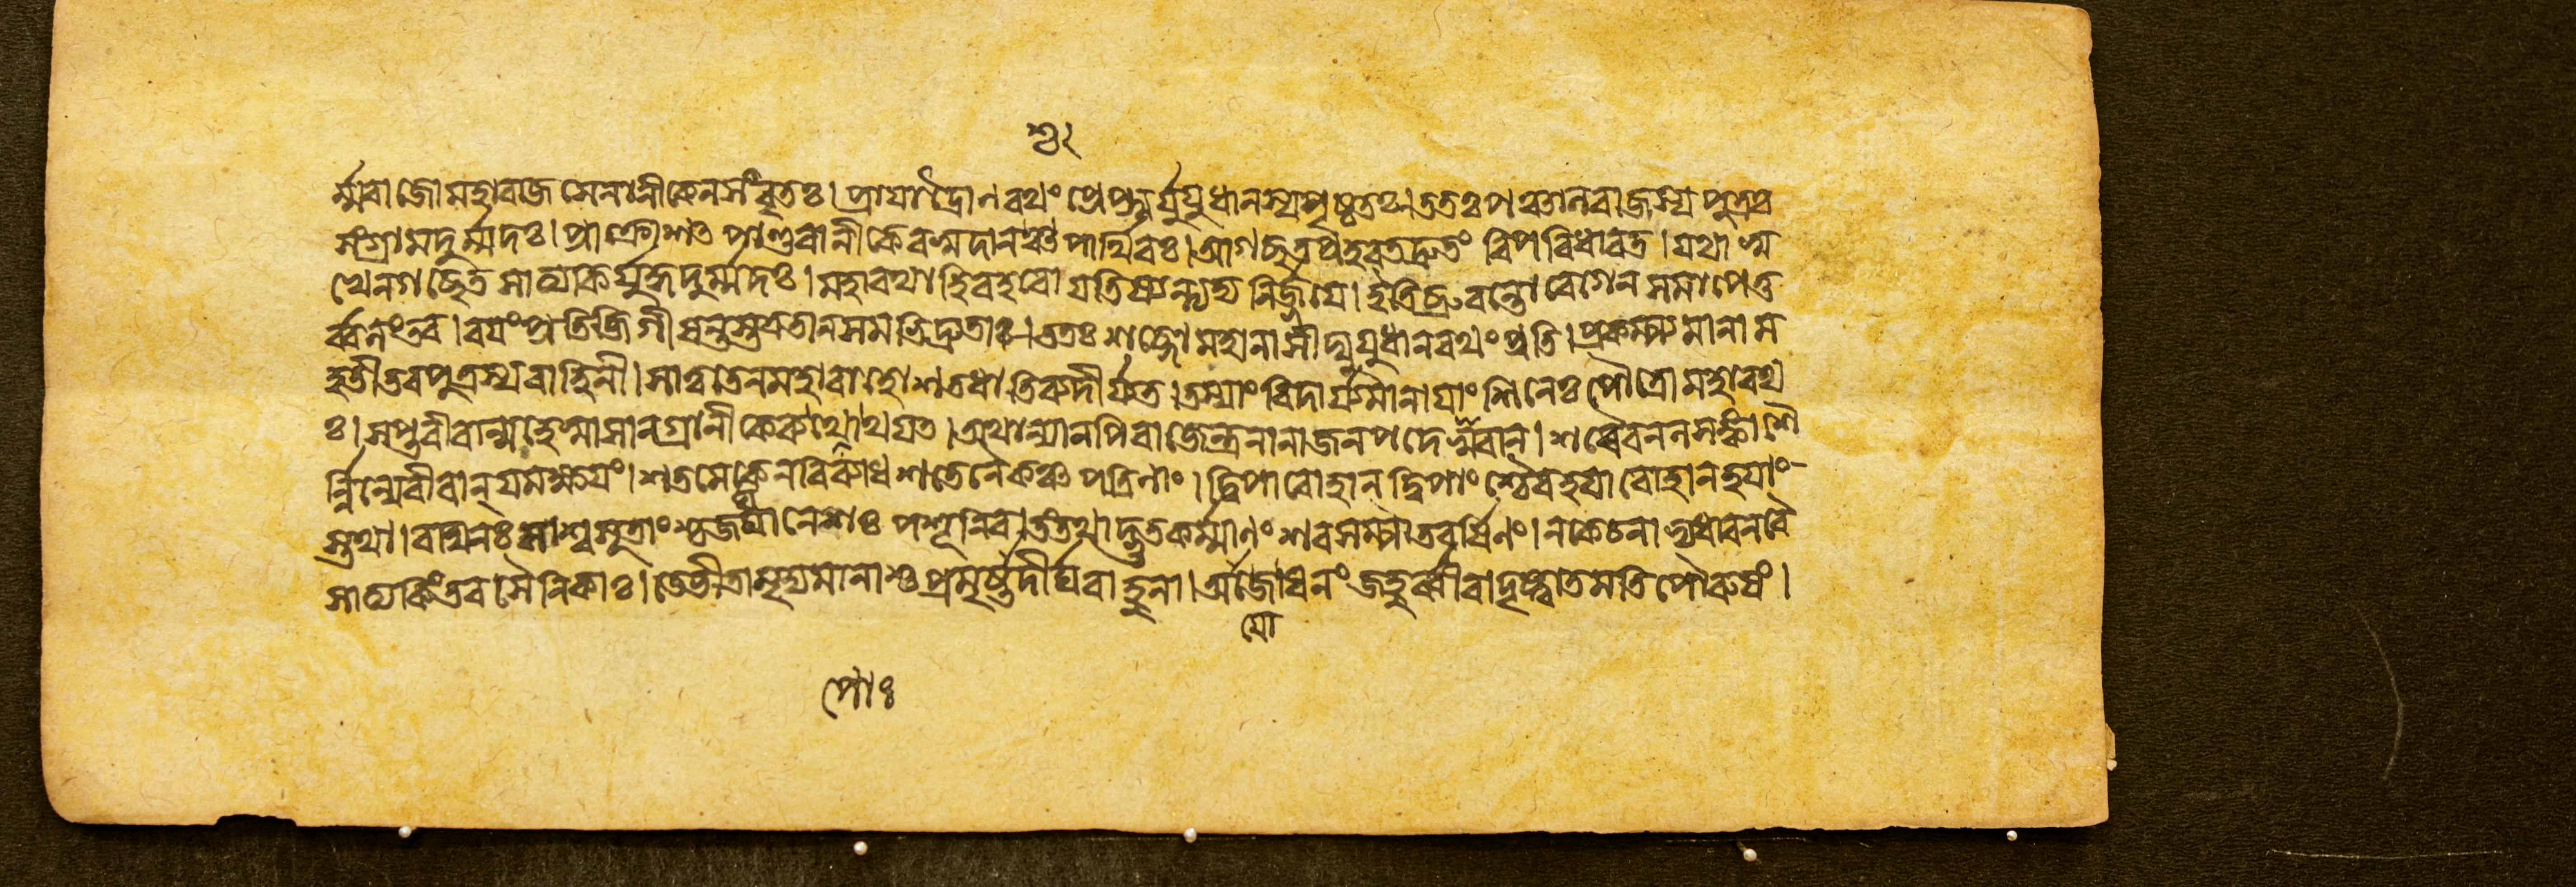 শ্রুঃ
র্ম্মরাজো মহারাজ সেনানীকেন সংবৃতঃ। প্রাযাদ্দ্রোনরথং প্রেপ্সুর্যুযুধানস্য পৃষ্ঠতঃ। ততঃ পঞ্চালরাজস্য পুত্রঃ প্র
সংগ্রামদুর্ম্মদঃ। প্রাক্রোশৎ পাণ্ডবানীকে বসুদানশ্চ পার্থিবঃ। আগচ্ছত প্রহরত দ্রুতং বিপরিধাবত। যথা সু
খেন গচ্ছেত সাত্যকির্যুদ্ধদুর্ম্মদঃ। মহারথা হি বহবো যতিষ্যন্ত্যস্য নির্জ্জযে। ইতি ব্রুবন্তো বেগেন সমাপেতু
র্ব্বলং তব। বযং প্রতিজিগীষন্তস্তত্র তান সমভিদ্রুতাঃ। ততঃ শব্দো মহানাসীদ্যুযুধানরথং প্রতি। প্রকম্প্যমানা ম
হতী তব পুত্রস্য বাহিনী। সাত্বতেন মহাবাহো শতধাভিব্যদীর্যত। তস্যাং বিদীর্যমানাযাং শিনেঃ পৌত্রো মহারথ
ঃ। সপ্ত বীরান্মহেষ্বাসানগ্রানীকে ব্যপোথযত। অথান্যানপি রাজেন্দ্র নানাজনপদেশ্বরান্। শরৈরনলসঙ্কাশৈ
র্নিন্যে বীরান্ যমক্ষযং। শতমেকেন বিব্যাধ শতেনৈকঞ্চ পত্রিনাং। দ্বিপারোহান্ দ্বিপাংশ্চৈব হযারোহান্ হযাং
স্তথা। রথিনঃ সাশ্বসূতাংশ্চ জঘানেশঃ পশূনিব। তং তথাদ্ভুতকর্ম্মাণং শরসম্পাতবর্ষিণং। ন কেচনাভ্যধাবন বৈ
সাত্যকিং তব সৈনিকাঃ। তে ভীতা মৃদ্যমানাশ্চ প্রমৃষ্টা দীর্ঘবাহুনা। আজোধনং জহুর্ব্বীরা দৃষ্ট্বা তমতিপৌরুষং।
যো
পোঃ